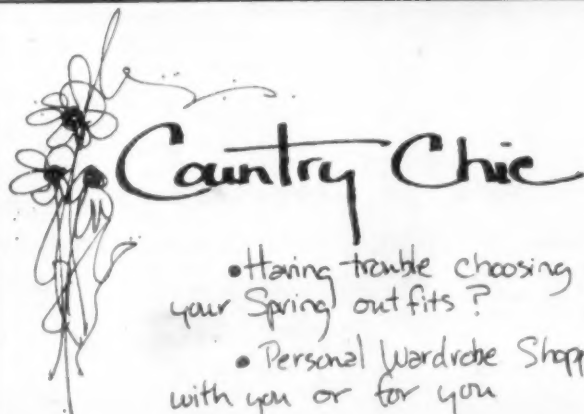 Country Chic
• Having trouble choosing
your Spring outfits?
• Personal Wardrobe Shopp
with you or for you